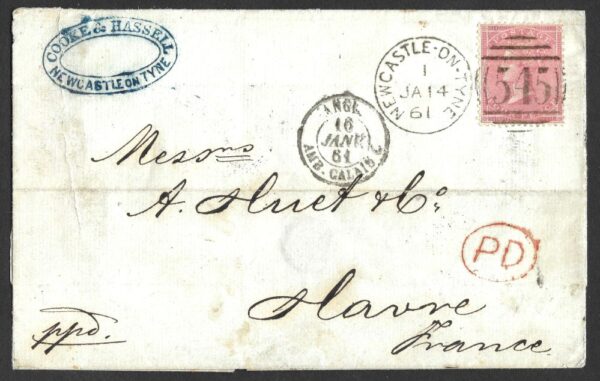 COOKE & HASSELL
NEWCASTLE ON TYNE
NEWCASTLE-ON-TYNE
1
JA 14
61
545
ANGL.
16
JANV
61
AMB. CALAIS
Messrs
A. Huet & Co
PD
Havre
France
ppd.